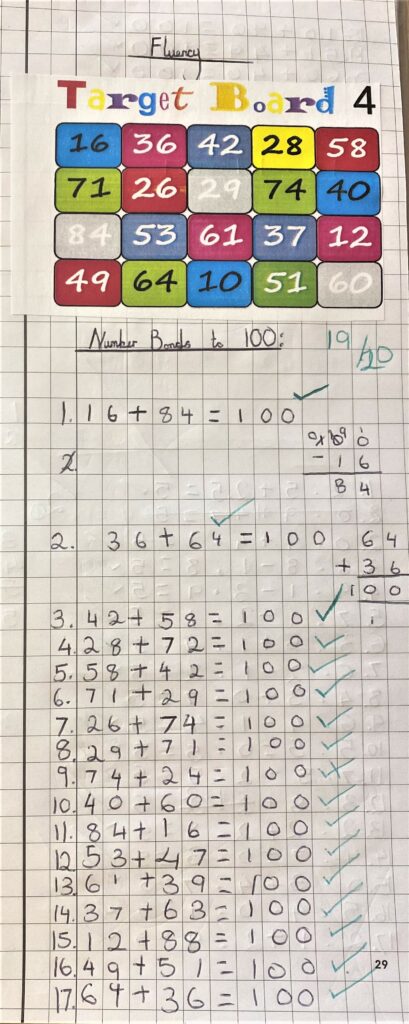 Fluency
Target Board 4
16 36 42 28 58
71 26 29 74 40
84 53 61 37 12
49 64 10 51 60
Number Bonds to 100:
19/20
1. 16 + 84 = 100
2.
- 16
84
2. 36 + 64 = 100
64
+ 36
100
3. 42 + 58 = 100
4. 28 + 72 = 100
5. 58 + 42 = 100
6. 71 + 29 = 100
7. 26 + 74 = 100
8. 29 + 71 = 100
9. 74 + 24 = 100
10. 40 + 60 = 100
11. 84 + 16 = 100
12 53 + 47 = 100
13. 61 + 39 = 100
14. 37 + 63 = 100
15. 12 + 88 = 100
16. 49 + 51 = 100
29
17. 64 + 36 = 100